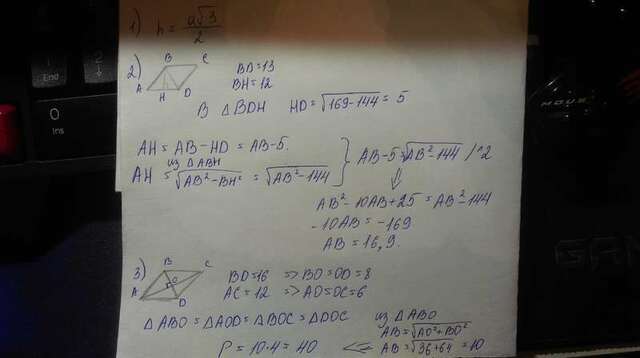 1) h = a√3/2
2) B C A H D BD=13
BH=12
В △BDH HD=√169-144 = 5
AH = AB-HD = AB-5.
из △ABH
AH = √AB²-BH² = √AB²-144 } AB-5=√AB²-144 /^2
⇓
AB²-10AB+25=AB²-144
-10AB=-169
AB=16,9.
3) B C O A D BD=16 => BO=OD=8
AC=12 => AO=OC=6
△ABO=△AOD=△BOC=△DOC из △ABO
AB=√AO²+BO²
P=10·4=40 <= AB=√36+64=10
1
End
2
0
Ins